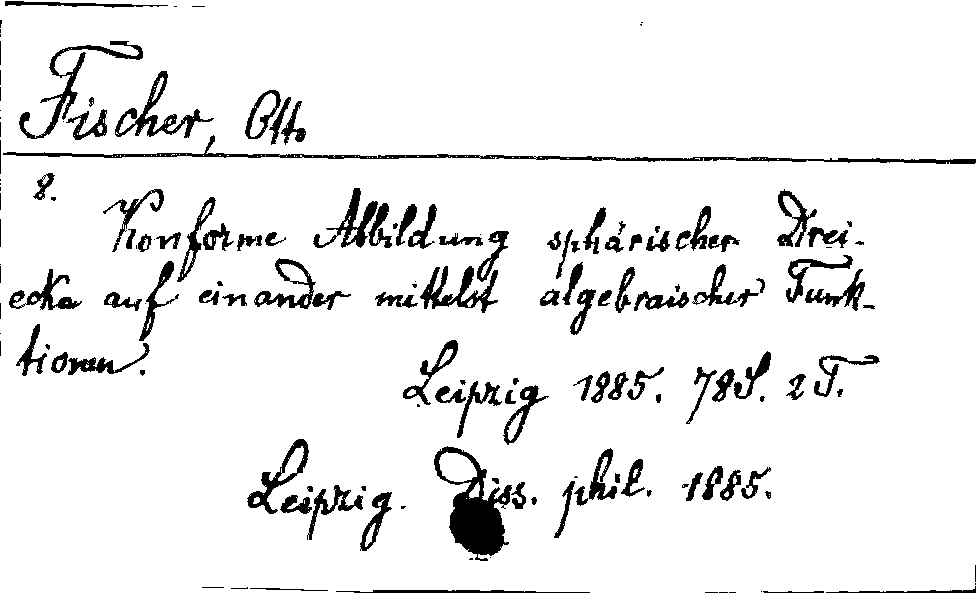 Fischer, Otto
8.
Konforme Abbildung sphärischer Drei-
ecke auf einander mittelst algebraischer Funk-
tionen.
Leipzig 1885. 78 S. 2 T.
Leipzig. Diss. phil. 1885.